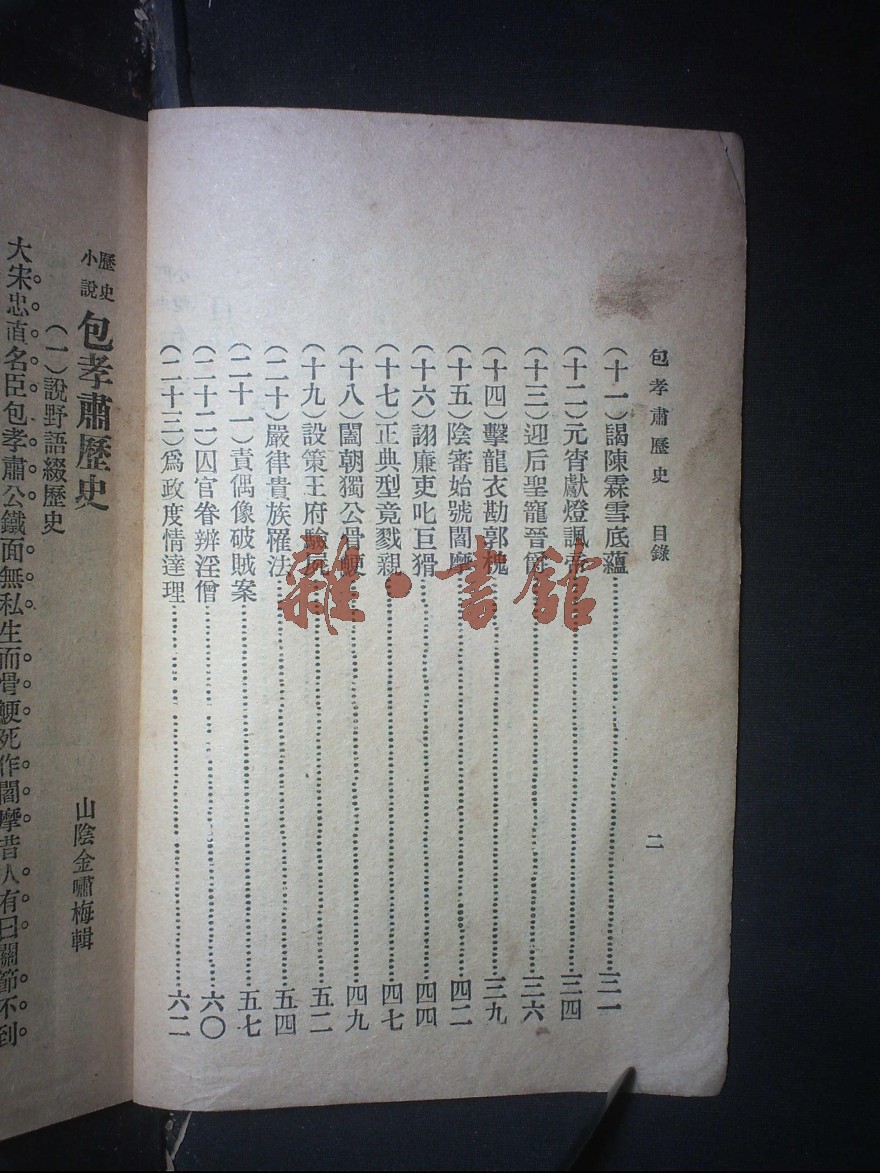 包孝肅歷史 目錄 二
（十一）謁陳霖雪底蘊……三一
（十二）元宵獻燈諷帝……三四
（十三）迎后聖寵晉爵……三六
（十四）擊龍衣勘郭槐……三九
（十五）陰審始號閻摩……四二
（十六）詡廉吏叱巨猾……四四
（十七）正典型竟戮親……四七
（十八）闔朝獨公骨鯁……四九
（十九）設策王府驗屍……五二
（二十）嚴律貴族罹法……五四
（二十一）責偶像破賊案……五七
（二十二）囚官眷辨淫僧……六〇
（二十三）爲政度情達理……六二
歷史小說 包孝肅歷史
山陰金嘯梅輯
（一）說野語綴歷史
大宋忠直名臣包孝肅公鐵面無私生而骨鯁死作閻摩昔人有曰關節不到
雜·書館